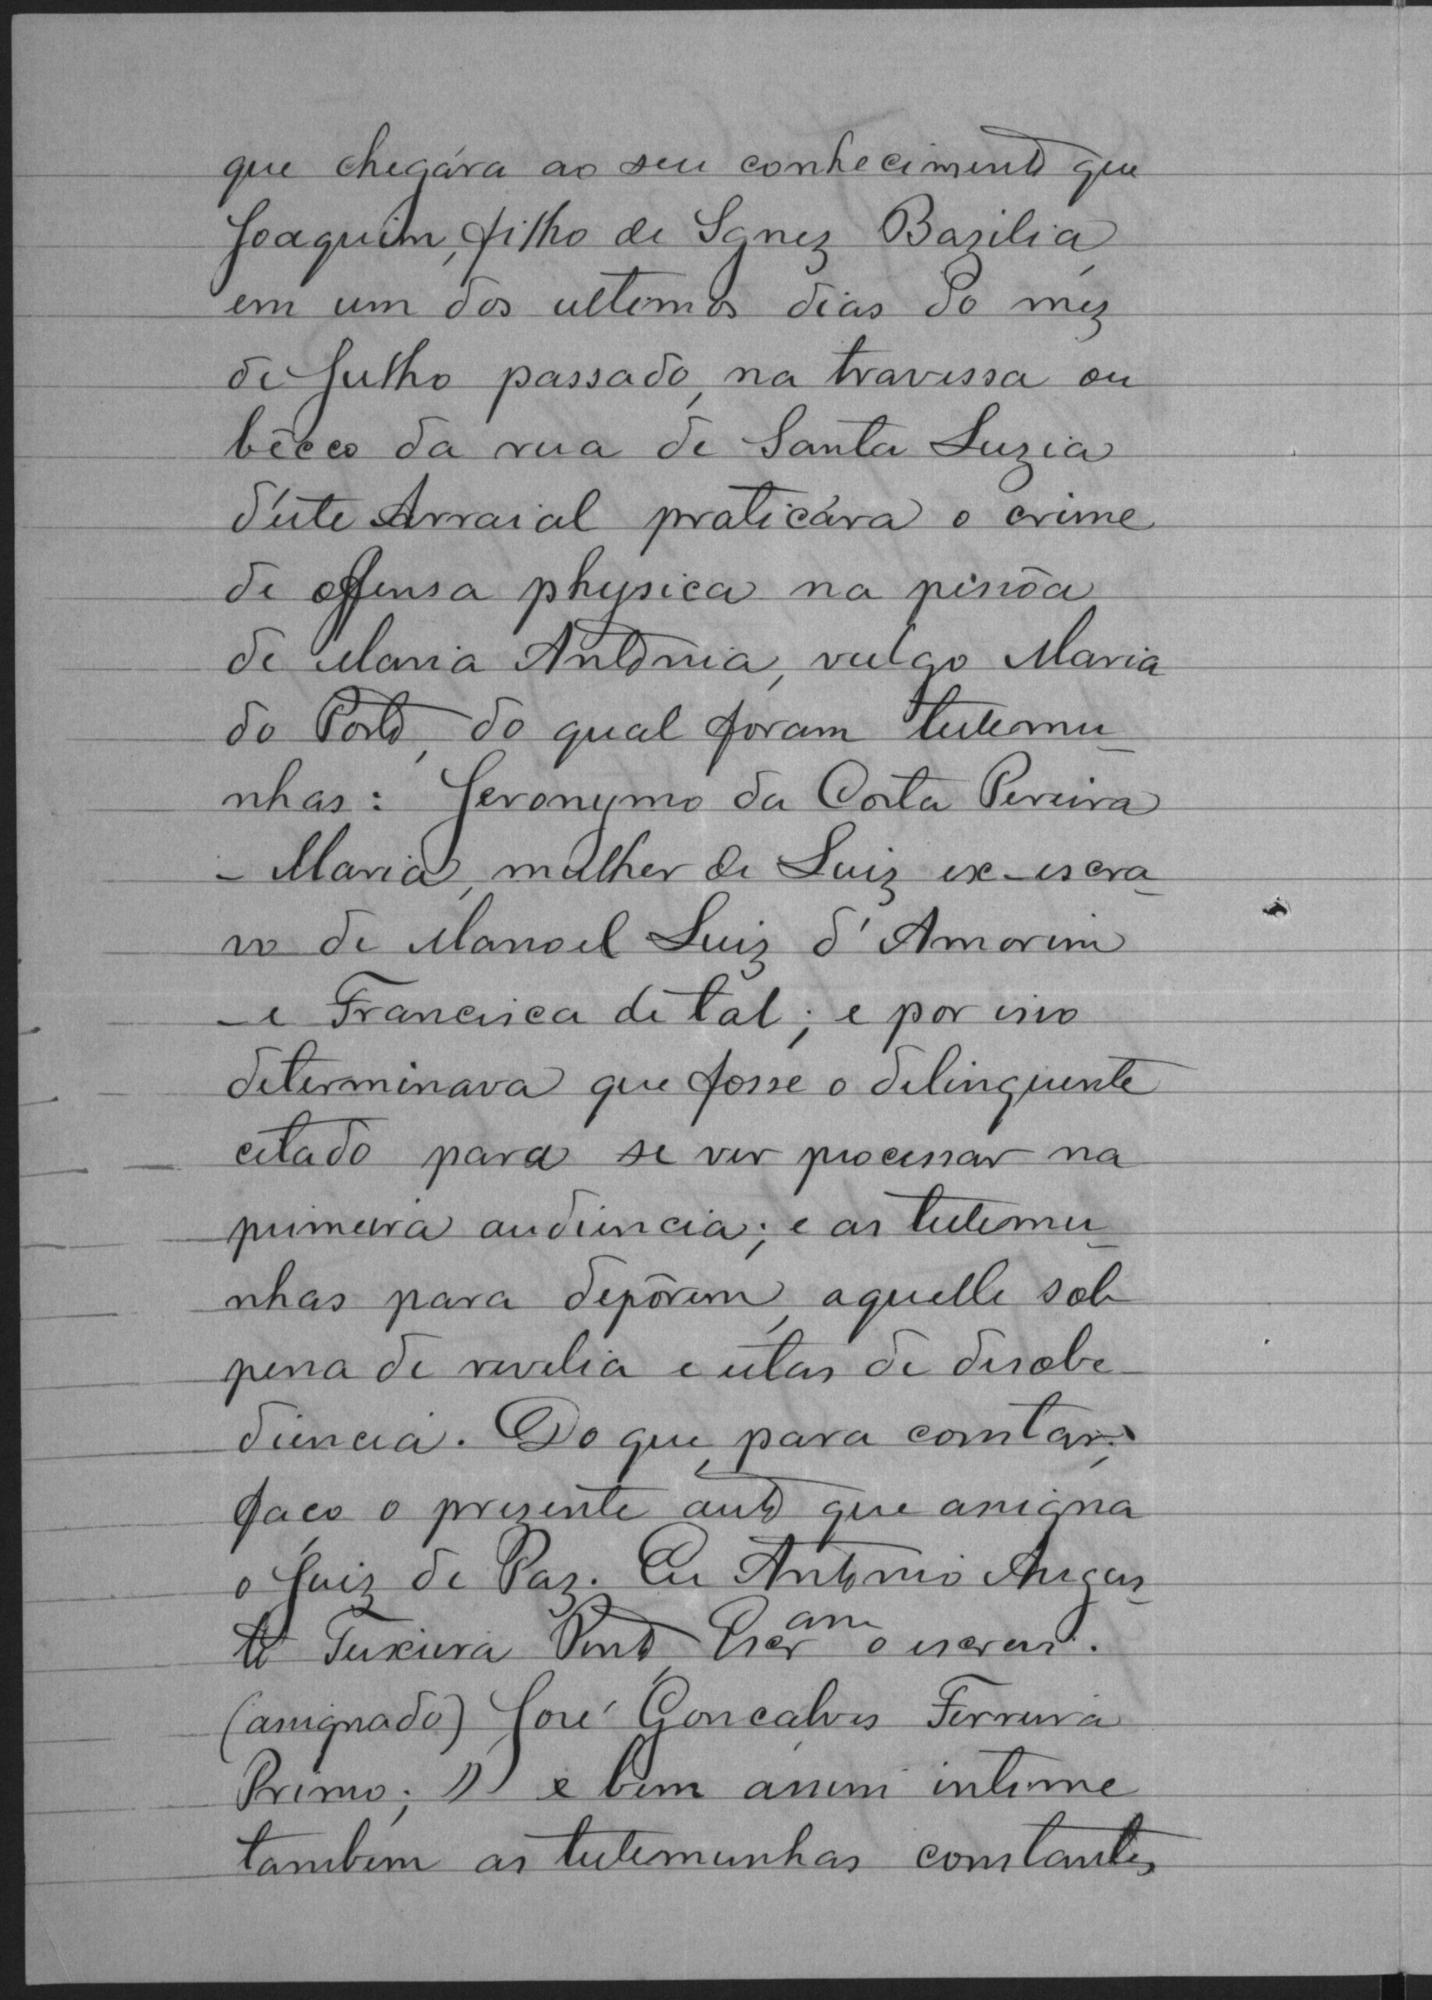 que chegára ao seu conhecimento que
Joaquim, filho de Ignez Bazilia,
em um dos ultimos dias do mez
de Julho passado, na travessa ou
bêcco da rua de Santa Luzia
d'éste Arraial praticára o crime
de offensa physica na pessôa
de Maria Antonia, vulgo Maria
do Porto, do qual foram testemu-
nhas: Jeronymo da Costa Pereira
- Maria, mulher de Luiz ex-escra-
vo de Manoel Luiz d'Amorim
- e Francisca de tal; e por isso
determinava que fosse o delinquente
citado para se ver processar na
primeira audiencia; e as testemu-
nhas para depôrem, aquelle sob
pena de revelia e estas de desobe-
diencia. Do que, para constar,
faço o prezente auto que assigna
o Juiz de Paz. Eu Antonio Augus-
to Teixeira Pinto, Escram o escrevi.
(assignado) José Gonçalves Ferreira
Primo; » e bem assim intime
tambem as testemunhas constantes